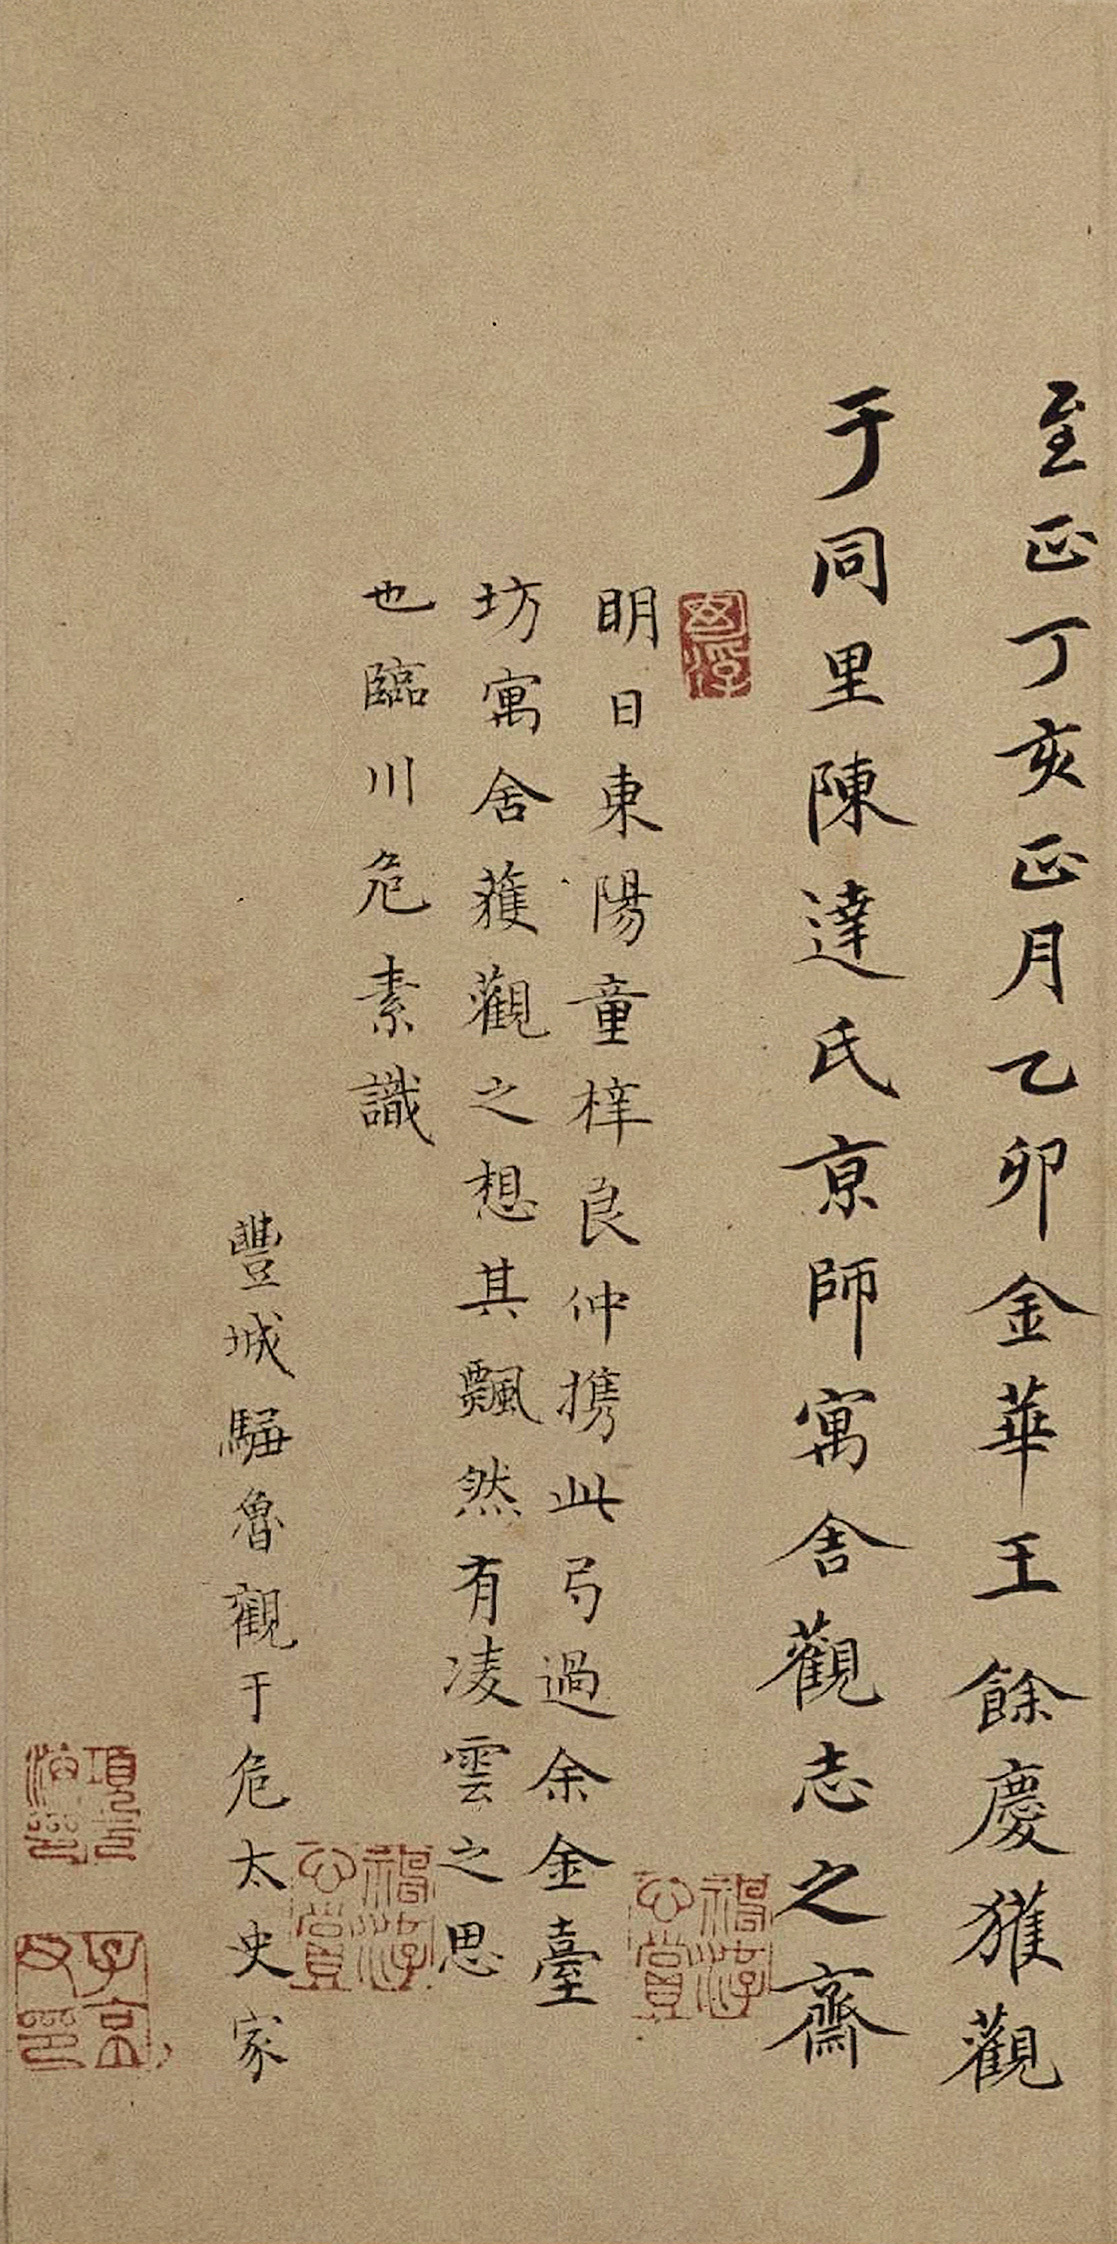 至正丁亥正月乙卯金華王餘慶獲觀
于同里陳達氏京師寓舍觀志之齋
明日東陽童梓良仲攜此弓過余金臺
坊寓舍獲觀之想其飄然有凌雲之思
也臨川危素識
豐城騶魯觀于危太史家
項元
汴印
子京
父印